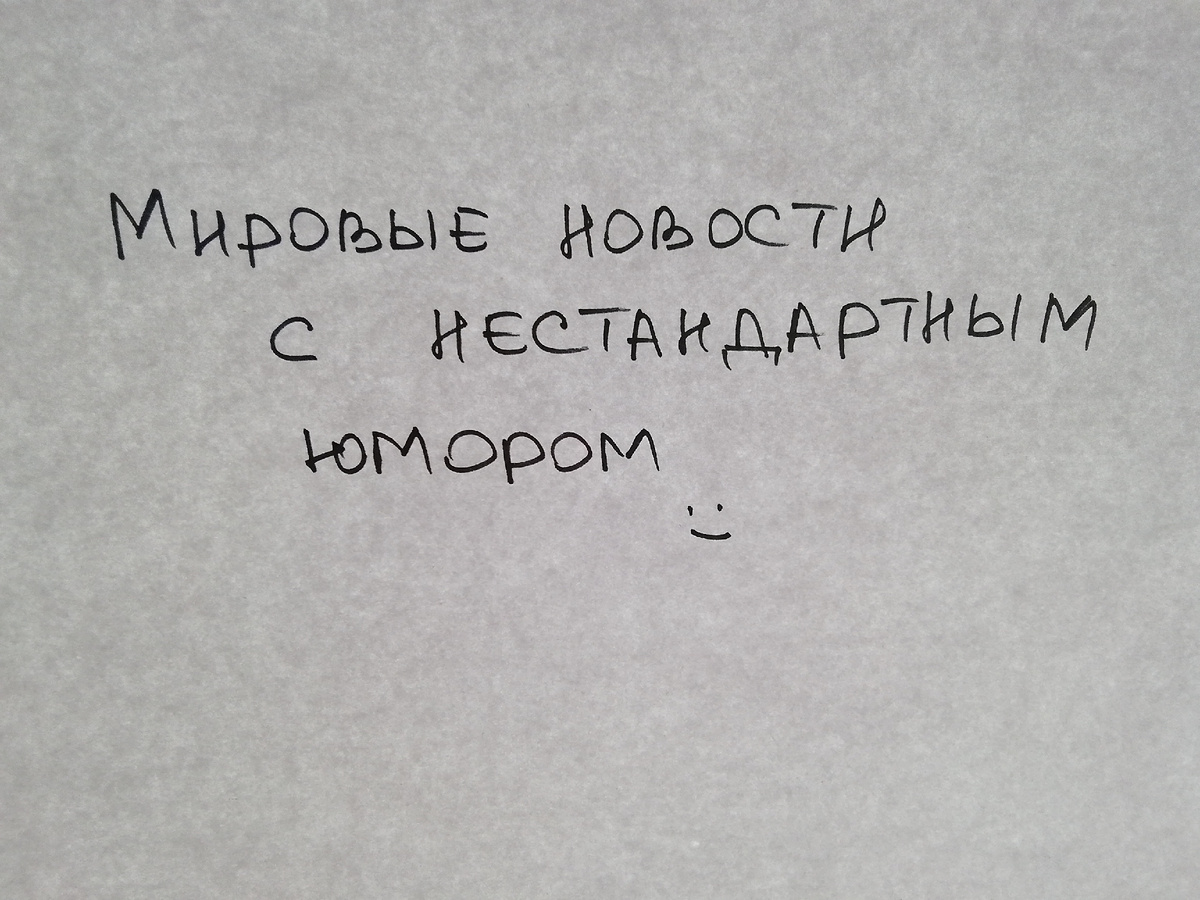 Мировые новости
с нестандартным
юмором